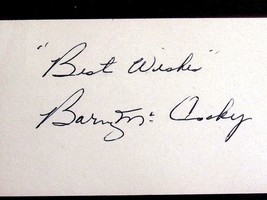 "Best Wishes"
Barney Mc Cosky